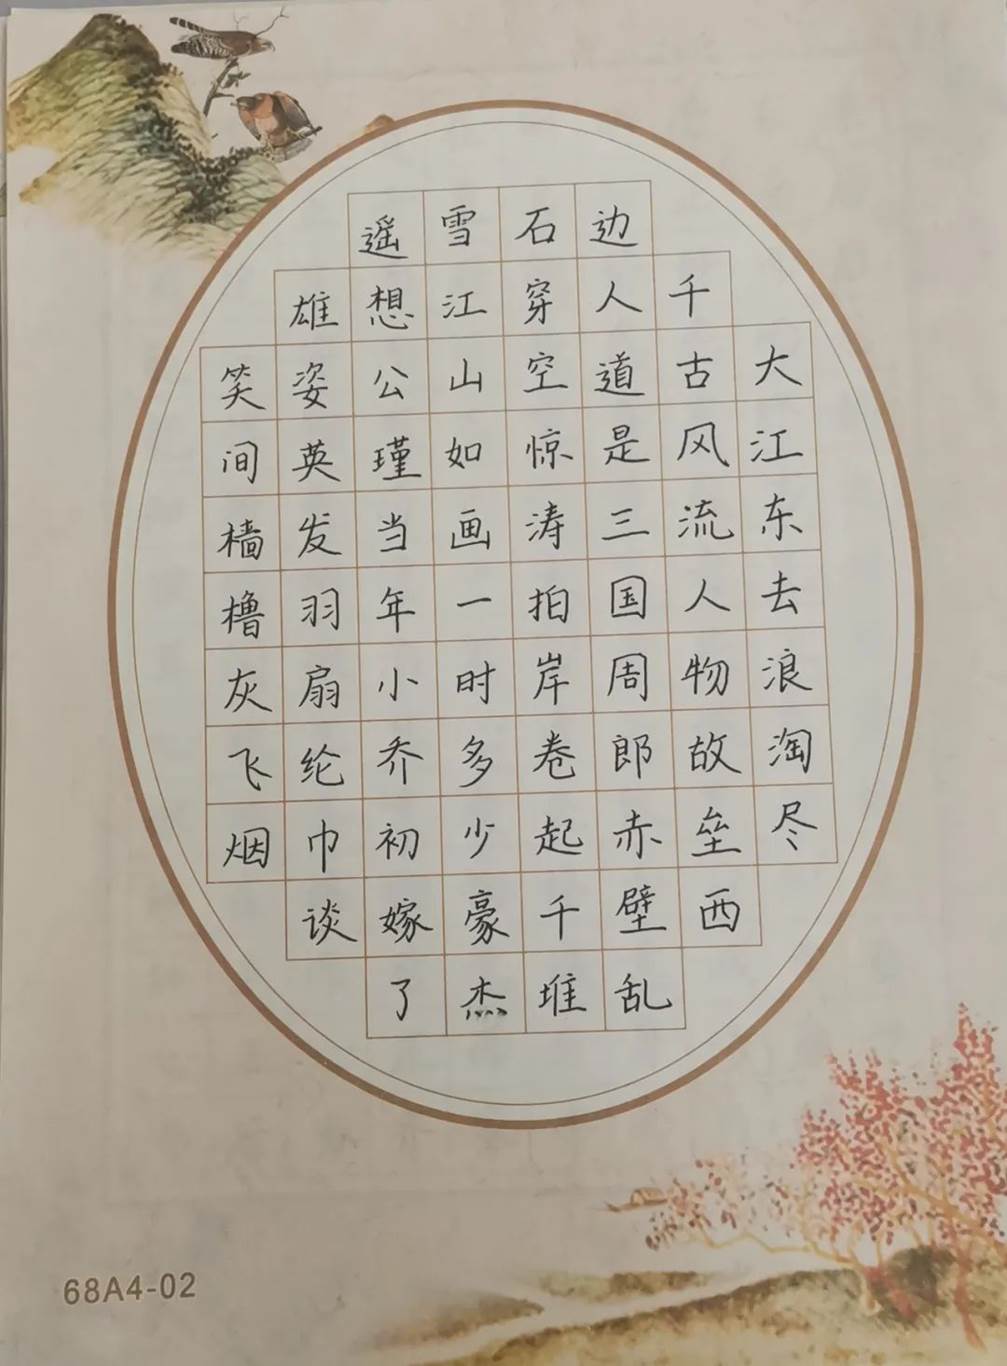 大江东去浪淘尽
千古风流人物故垒西
边人道是三国周郎赤壁乱
石穿空惊涛拍岸卷起千堆
雪江山如画一时多少豪杰
遥想公瑾当年小乔初嫁了
雄姿英发羽扇纶巾谈
笑间樯橹灰飞烟
68A4-02